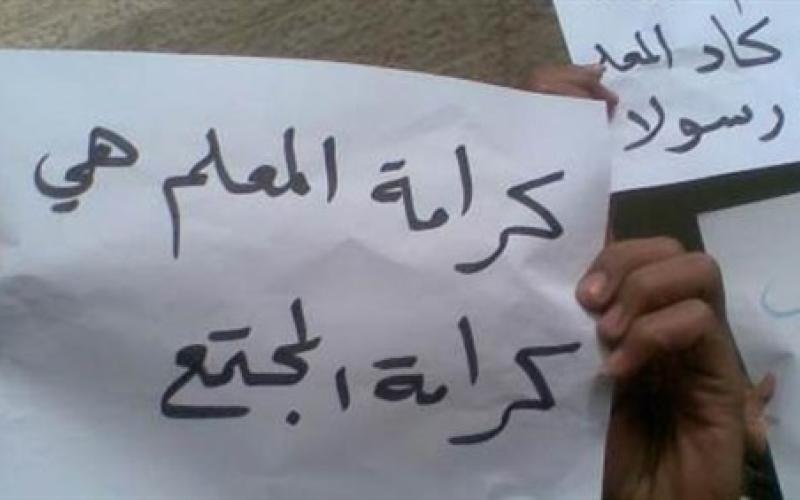 كرامة المعلم هي
كرامة المجتمع
كاد
رسولا